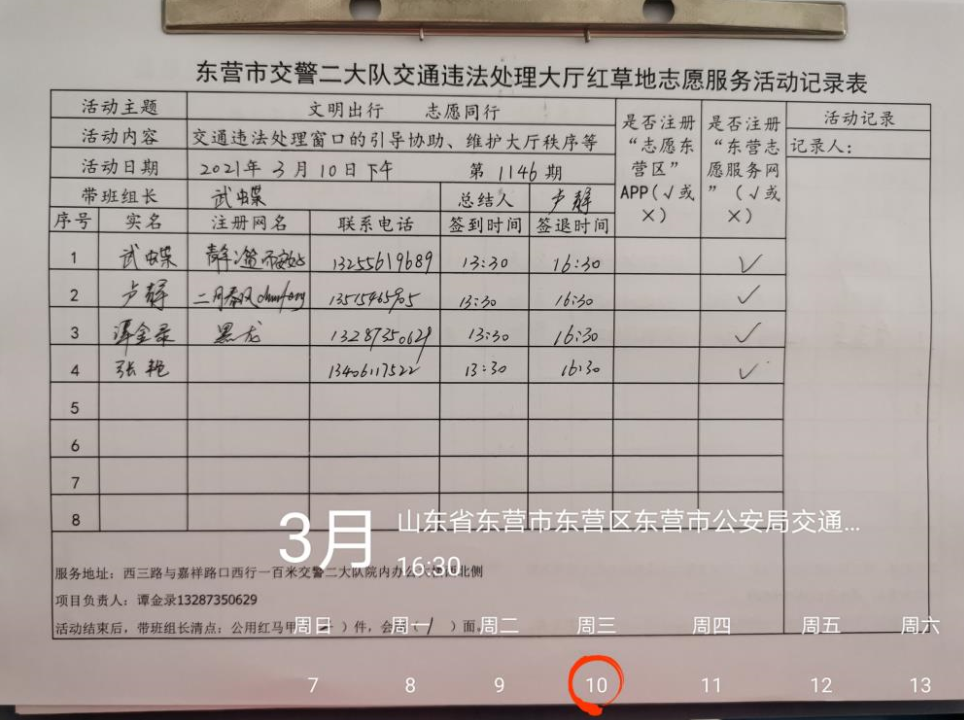 东营市交警二大队交通违法处理大厅红草地志愿服务活动记录表
活动主题 文明出行 志愿同行 是否注册“志愿东营区”APP(√或×) 是否注册“东营志愿服务网”(√或×) 活动记录
活动内容 交通违法处理窗口的引导协助、维护大厅秩序等 记录人:
活动日期 2021年 3月 10日下午 第 1146 期
带班组长 武蝶 总结人 卢静
序号 实名 注册网名 联系电话 签到时间 签退时间
1 武蝶 13255619689 13:30 16:30 ✓
2 卢静 二月春风chunfeng 13515465905 13:30 16:30 ✓
3 谭金录 黑龙 13287350629 13:30 16:30 ✓
4 张艳 13406117522 13:30 16:30 ✓
5
6
7
8
3月
山东省东营市东营区东营市公安局交通...
16:30
服务地址: 西三路与嘉祥路口西行一百米交警二大队院内办公 北侧
项目负责人: 谭金录13287350629
活动结束后, 带班组长清点: 公用红马甲 )件, 会 ( 1 )面,
周日 周一 周二 周三 周四 周五 周六
7 8 9 10 11 12 13